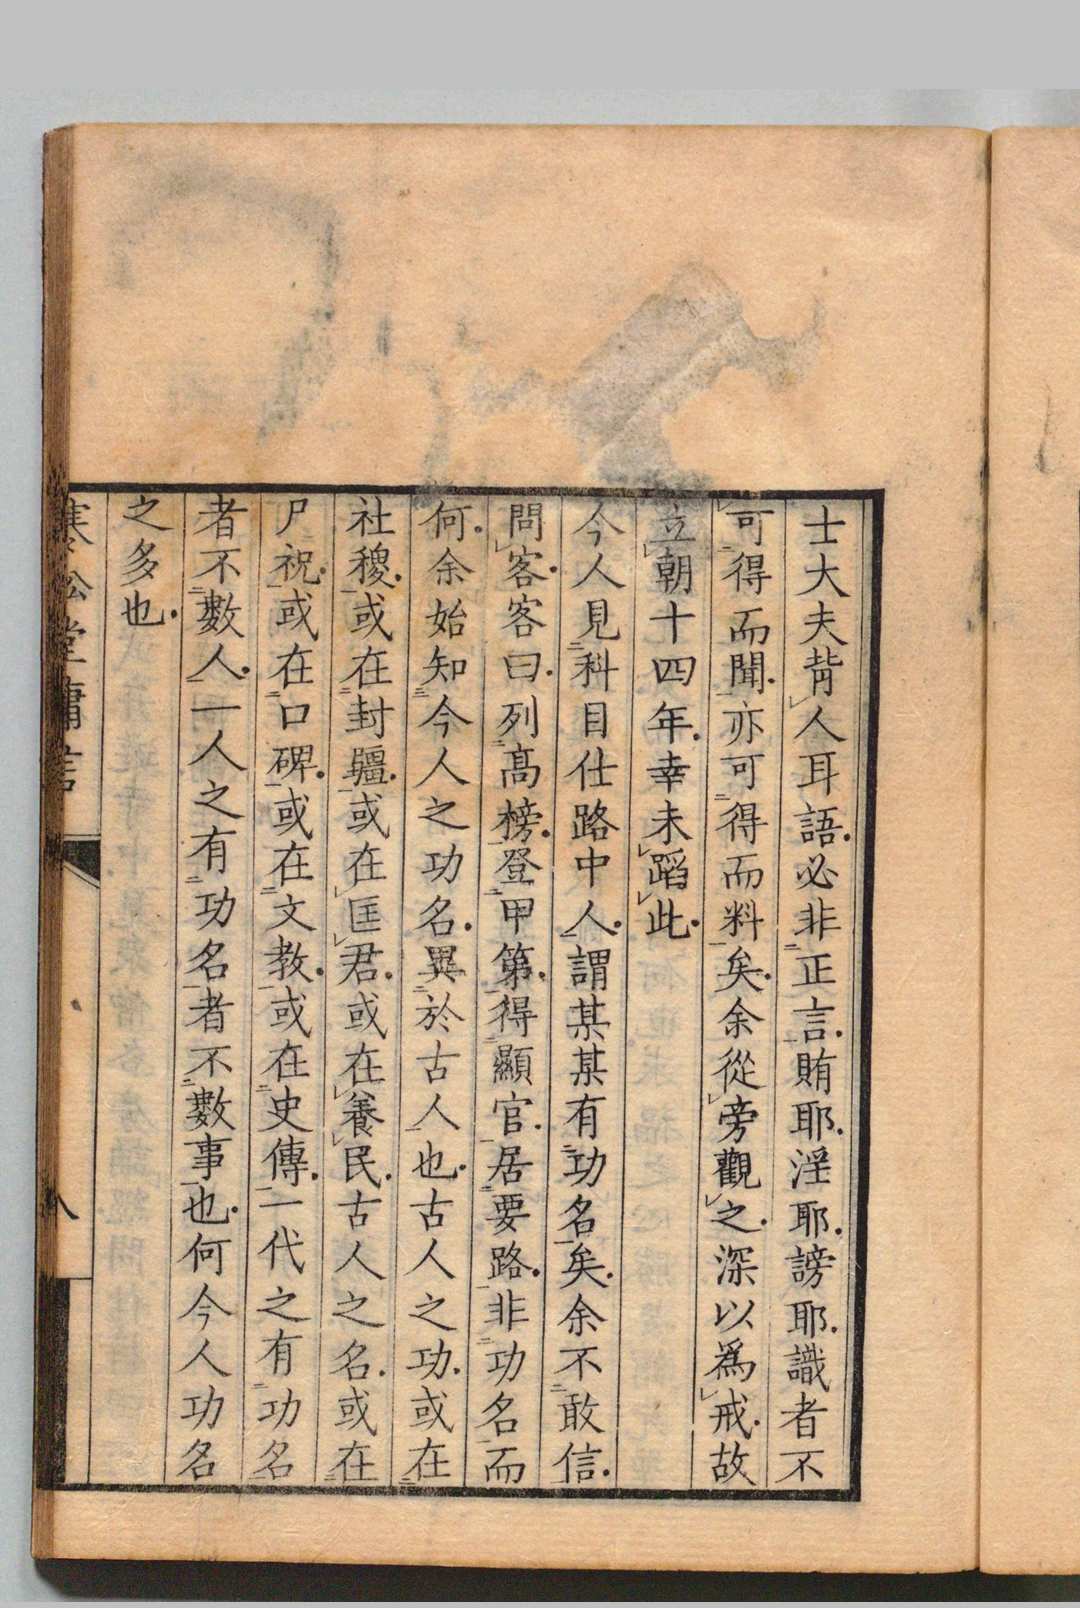 士大夫背人耳語必非正言賄耶淫耶謗耶識者不
可得而聞亦可得而料矣余從旁觀之深以爲戒故
立朝十四年幸未蹈此
今人見科目仕路中人謂某某有功名矣余不敢信
問客客曰列高榜登甲第得顯官居要路非功名而
何余始知今人之功名異於古人也古人之功或在
社稷或在封疆或在匡君或在養民古人之名或在
尸祝或在口碑或在文教或在史傳一代之有功名
者不數人一人之有功名者不數事也何今人功名
之多也
寒松堂庸言
八